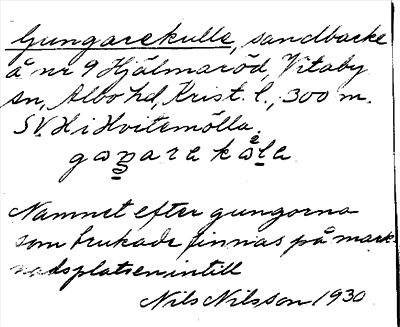 Gungarekulle, sandbacke
å nr 9 Hjälmaröd, Vitaby
sn, Albo hd, Krist. l., 300 m.
SV. H i Hvitemölla.
Namnet efter gungorna
som brukade finnas på mark-
nadsplatsen intill
Nils Nilsson 1930